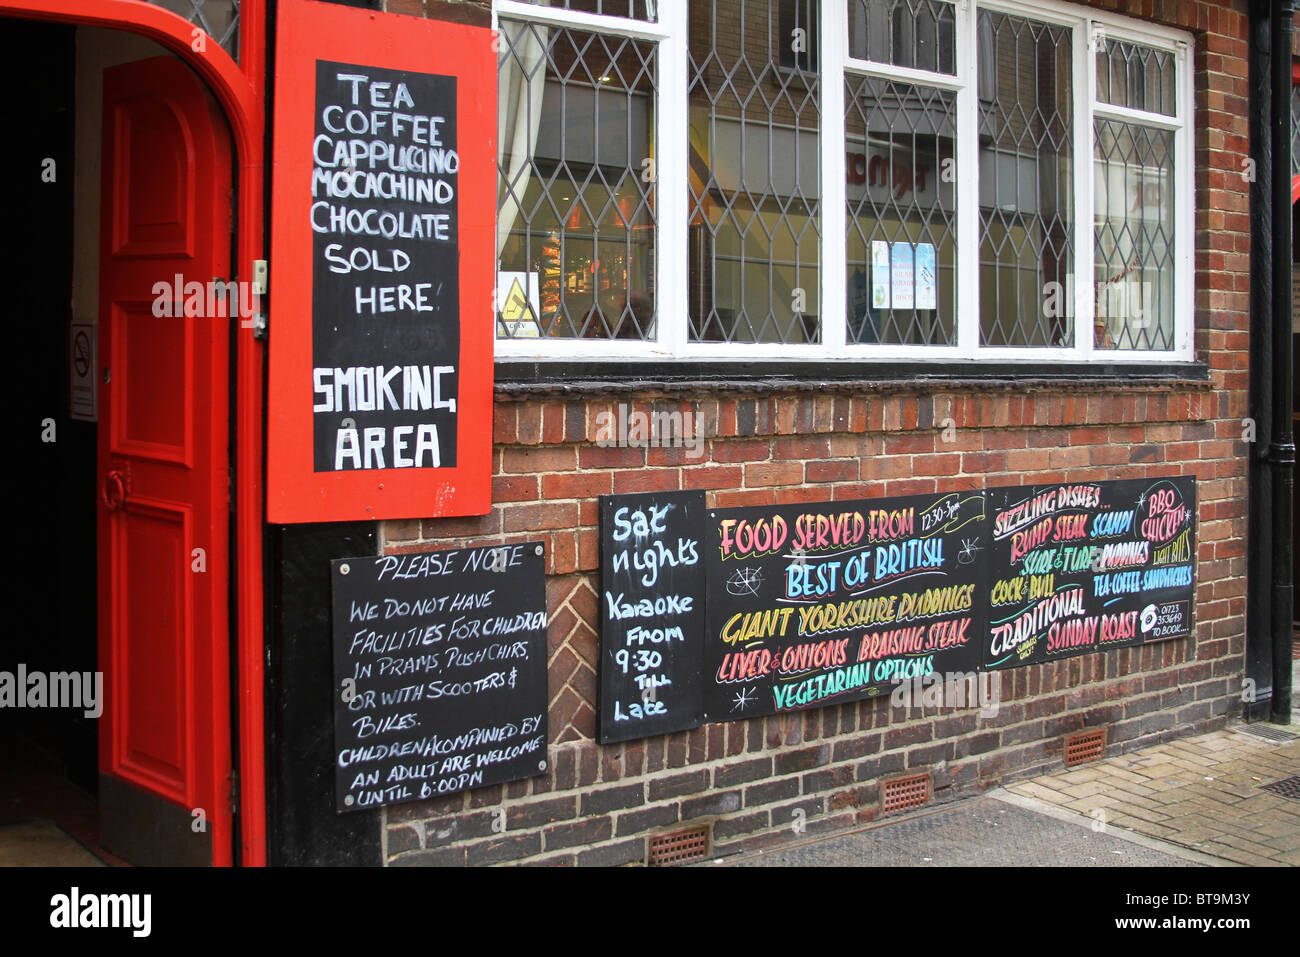 TEA
COFFEE
CAPPUCCINO
MOCACHINO
CHOCOLATE
SOLD
HERE
SMOKING
AREA
CCTV
PLEASE NOTE
WE DO NOT HAVE
FACILITIES FOR CHILDREN
IN PRAMS, PUSHCHIRS,
OR WITH SCOOTERS &
BIKES.
CHILDREN ACOMPANIED BY
AN ADULT ARE WELCOME
UNTIL 6:00PM
Sat
Nights
Karaoke
From
9:30
TILL
Late
FOOD SERVED FROM 12.30-3pm
BEST OF BRITISH
GIANT YORKSHIRE PUDDINGS
LIVER & ONIONS BRAISING STEAK
VEGETARIAN OPTIONS
SIZZLING DISHES...
RUMP STEAK SCAMPI
SURF & TURF PUDDINGS
COCK & BULL TEA-COFFEE-SANDWICHES
TRADITIONAL
SUNDAYS ONLY!
SUNDAY ROAST
BBQ
CHICKEN
LIGHT BITES
01723
353649
TO BOOK....
alamy
Image ID: BT9M3Y
www.alamy.com